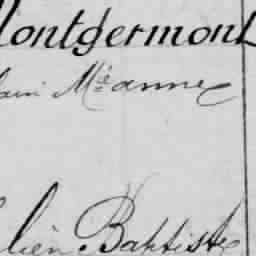 Montgermont
Mie anne
lien Baptiste